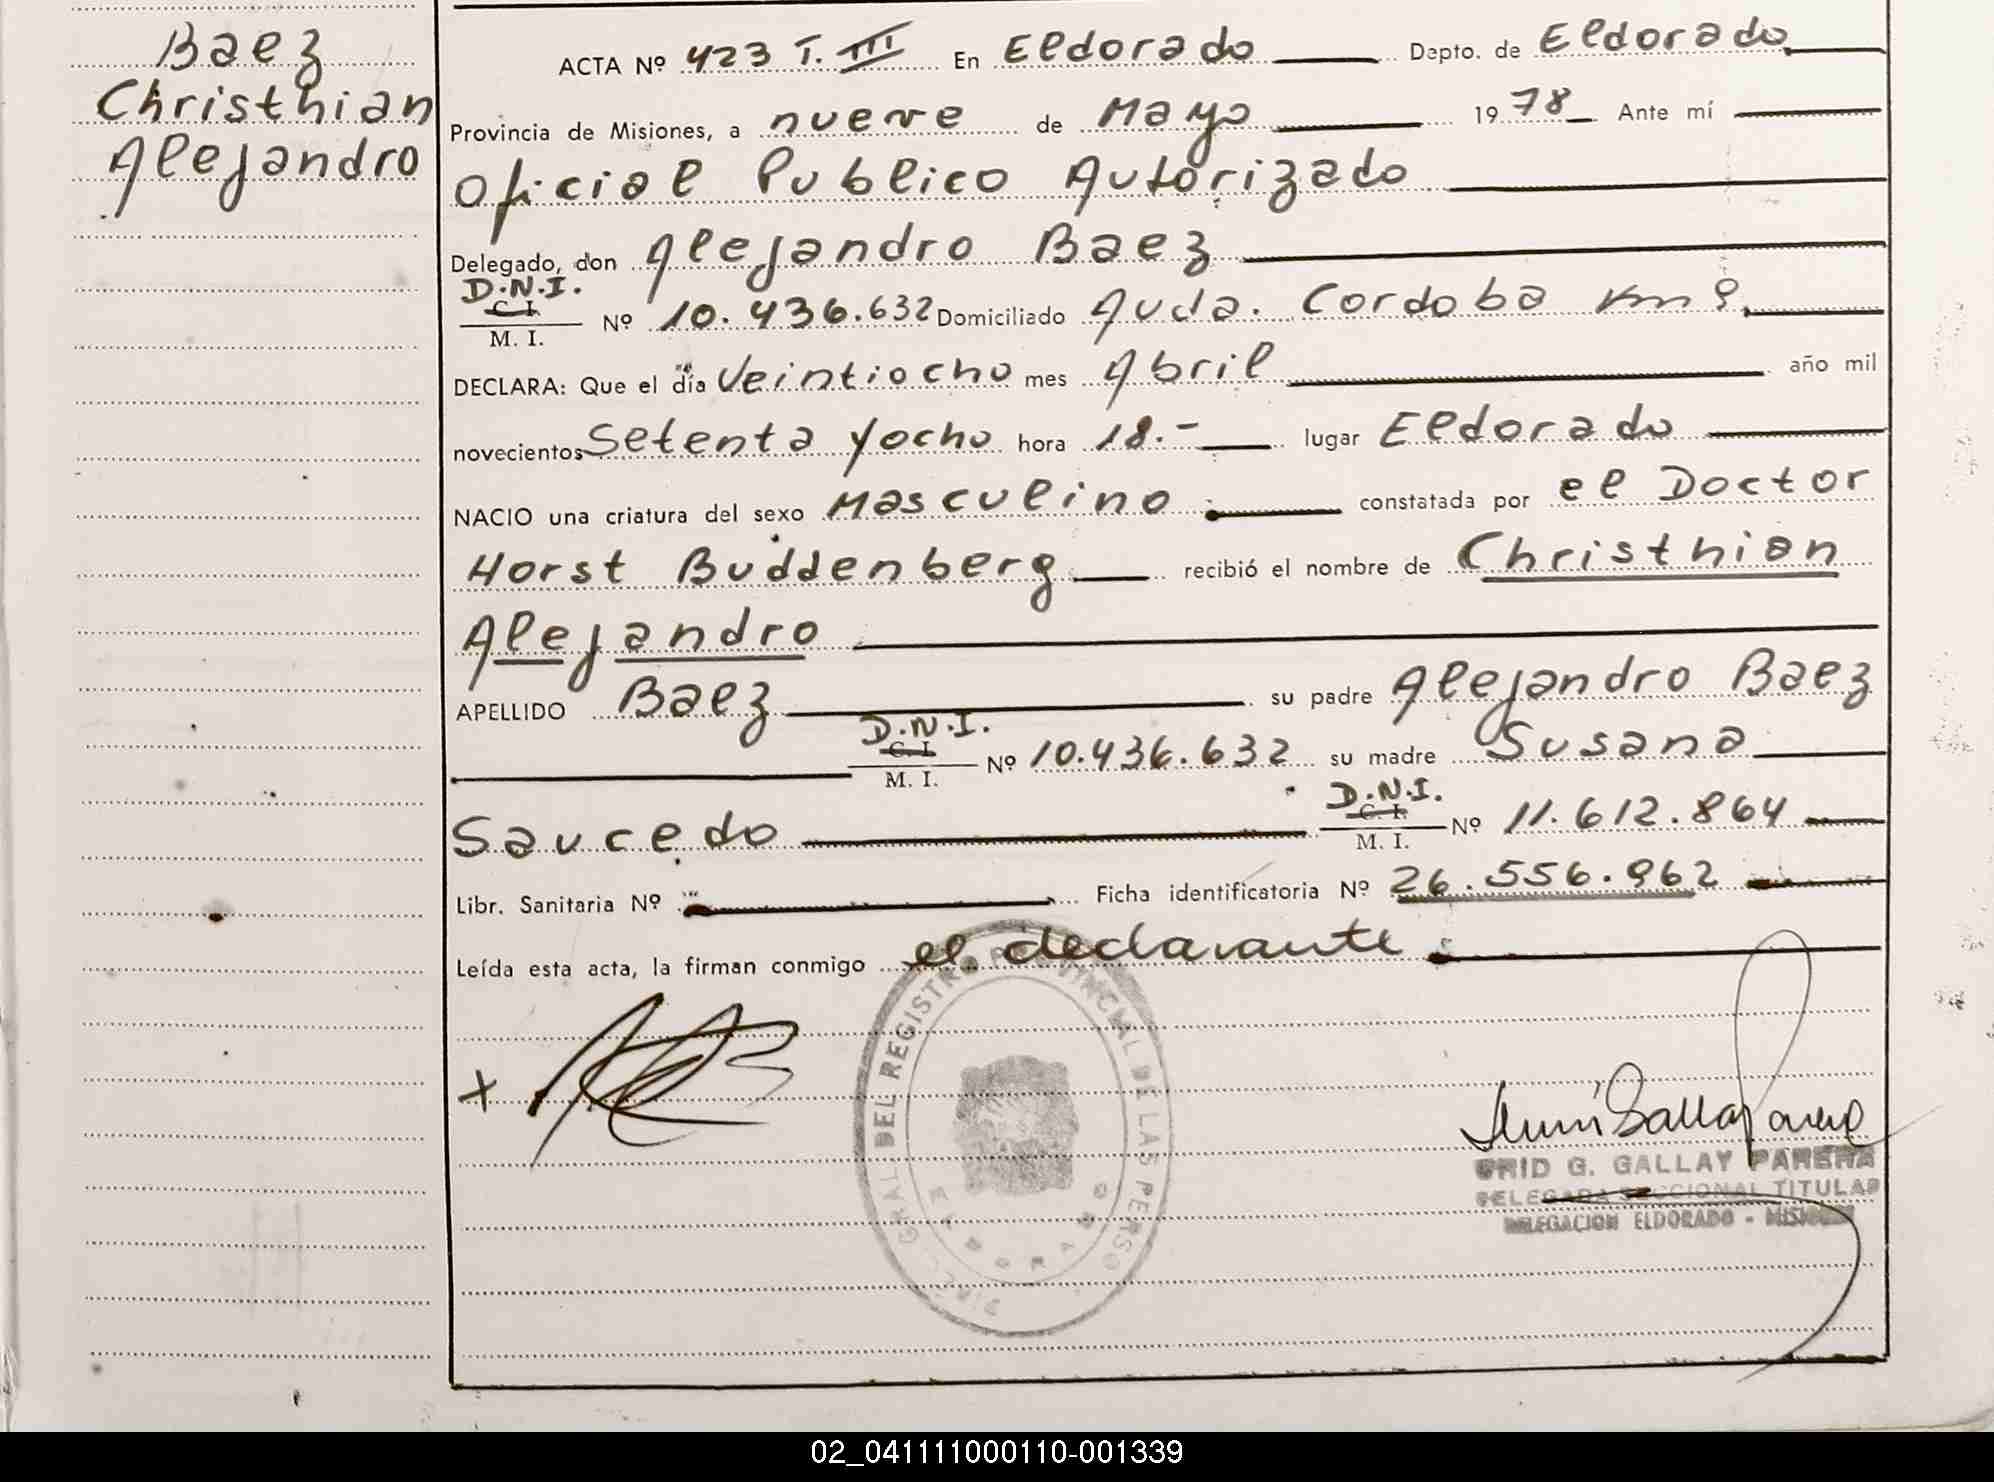 Baez
Christhian
Alejandro
ACTA Nº 423 T. III En Eldorado Depto. de Eldorado
Provincia de Misiones, a nueve de Mayo 1978 Ante mí
Oficial Publico Autorizado
Delegado, don Alejandro Baez
D.N.I.
C. I.
M. I.
Nº 10.436.632 Domiciliado Avda. Cordoba Km 9
DECLARA: Que el día Veintiocho mes Abril año mil
novecientos Setenta y ocho hora 18.- lugar Eldorado
NACIO una criatura del sexo Masculino constatada por el Doctor
Horst Buddenberg recibió el nombre de Christhian
Alejandro
APELLIDO Baez su padre Alejandro Baez
D.N.I.
C. I.
M. I.
Nº 10.436.632 su madre Susana
Saucedo
D.N.I.
C. I.
M. I.
Nº 11.612.864
Libr. Sanitaria Nº Ficha identificatoria Nº 26.556.962
Leída esta acta, la firman conmigo el declarante
GRAL DEL REGISTRO PROVINCIAL DE LAS PERSO
G. GALLAY PARERA
DELEGADA SECCIONAL TITULAR
DELEGACION ELDORADO - MISIONES
02_041111000110-001339